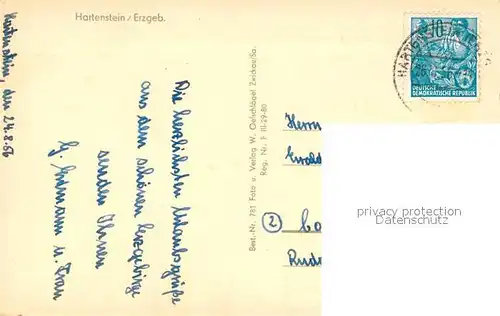 Hartenstein/Erzgeb.
Hartenstein, den 24.8.56
Die herzlichsten Urlaubsgrüße
aus dem schönen Erzgebirge
senden Ihnen
u. Frau
Best.-Nr. 781 Foto u. Verlag W. Oelschlägel Zwickau/Sa.
Reg. Nr. F III-29-80
10
DEUTSCHE
DEMOKRATISCHE REPUBLIK
Herrn
Ewald
2
privacy protection
Datenschutz